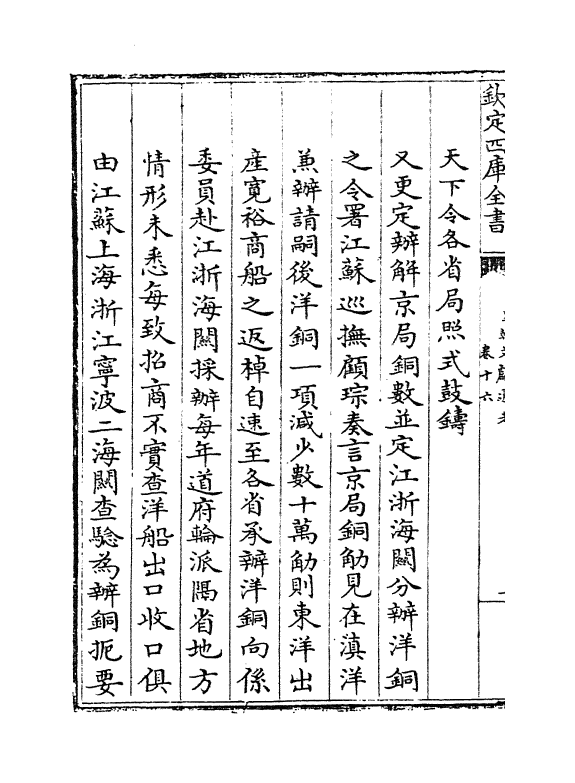 欽定四庫全書
卷十六
天下令各省局照式鼓鑄
又更定辦解京局銅數並定江浙海關分辦洋銅
之令署江蘇巡撫顧琮奏言京局銅觔見在滇洋
兼辦請嗣後洋銅一項減少數十萬觔則東洋出
產寛裕商船之返棹自速至各省承辦洋銅向係
委員赴江浙海關採辦每年道府輪派隔省地方
情形未悉每致招商不實查洋船出口收口俱
由江蘇上海浙江寧波二海關查驗為辦銅扼要